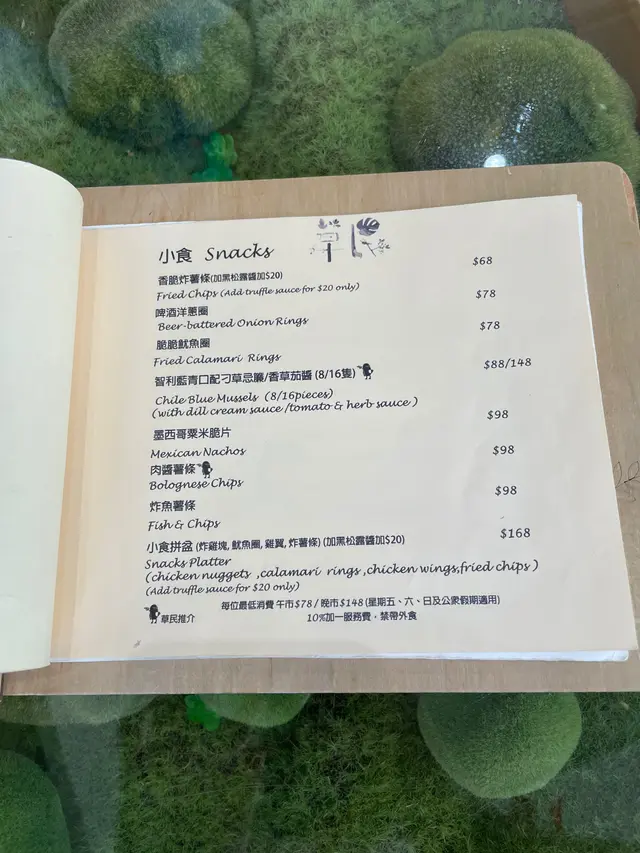 小食 Snacks
草民
香脆炸薯條(加黑松露醬加$20) $68
Fried Chips (Add truffle sauce for $20 only)
啤酒洋蔥圈 $78
Beer-battered Onion Rings
脆脆魷魚圈 $78
Fried Calamari Rings
智利藍青口配刁草忌廉/香草茄醬 (8/16隻) $88/148
Chile Blue Mussels (8/16pieces)
(with dill cream sauce /tomato & herb sauce )
墨西哥粟米脆片 $98
Mexican Nachos
肉醬薯條 $98
Bolognese Chips
炸魚薯條 $98
Fish & Chips
小食拼盆 (炸雞塊, 魷魚圈, 雞翼, 炸薯條) (加黑松露醬加$20) $168
Snacks Platter
(chicken nuggets ,calamari rings ,chicken wings,fried chips )
(Add truffle sauce for $20 only)
每位最低消費 午市$78 / 晚市$148 (星期五、六、日及公眾假期適用)
草民推介 10%加一服務費，禁帶外食